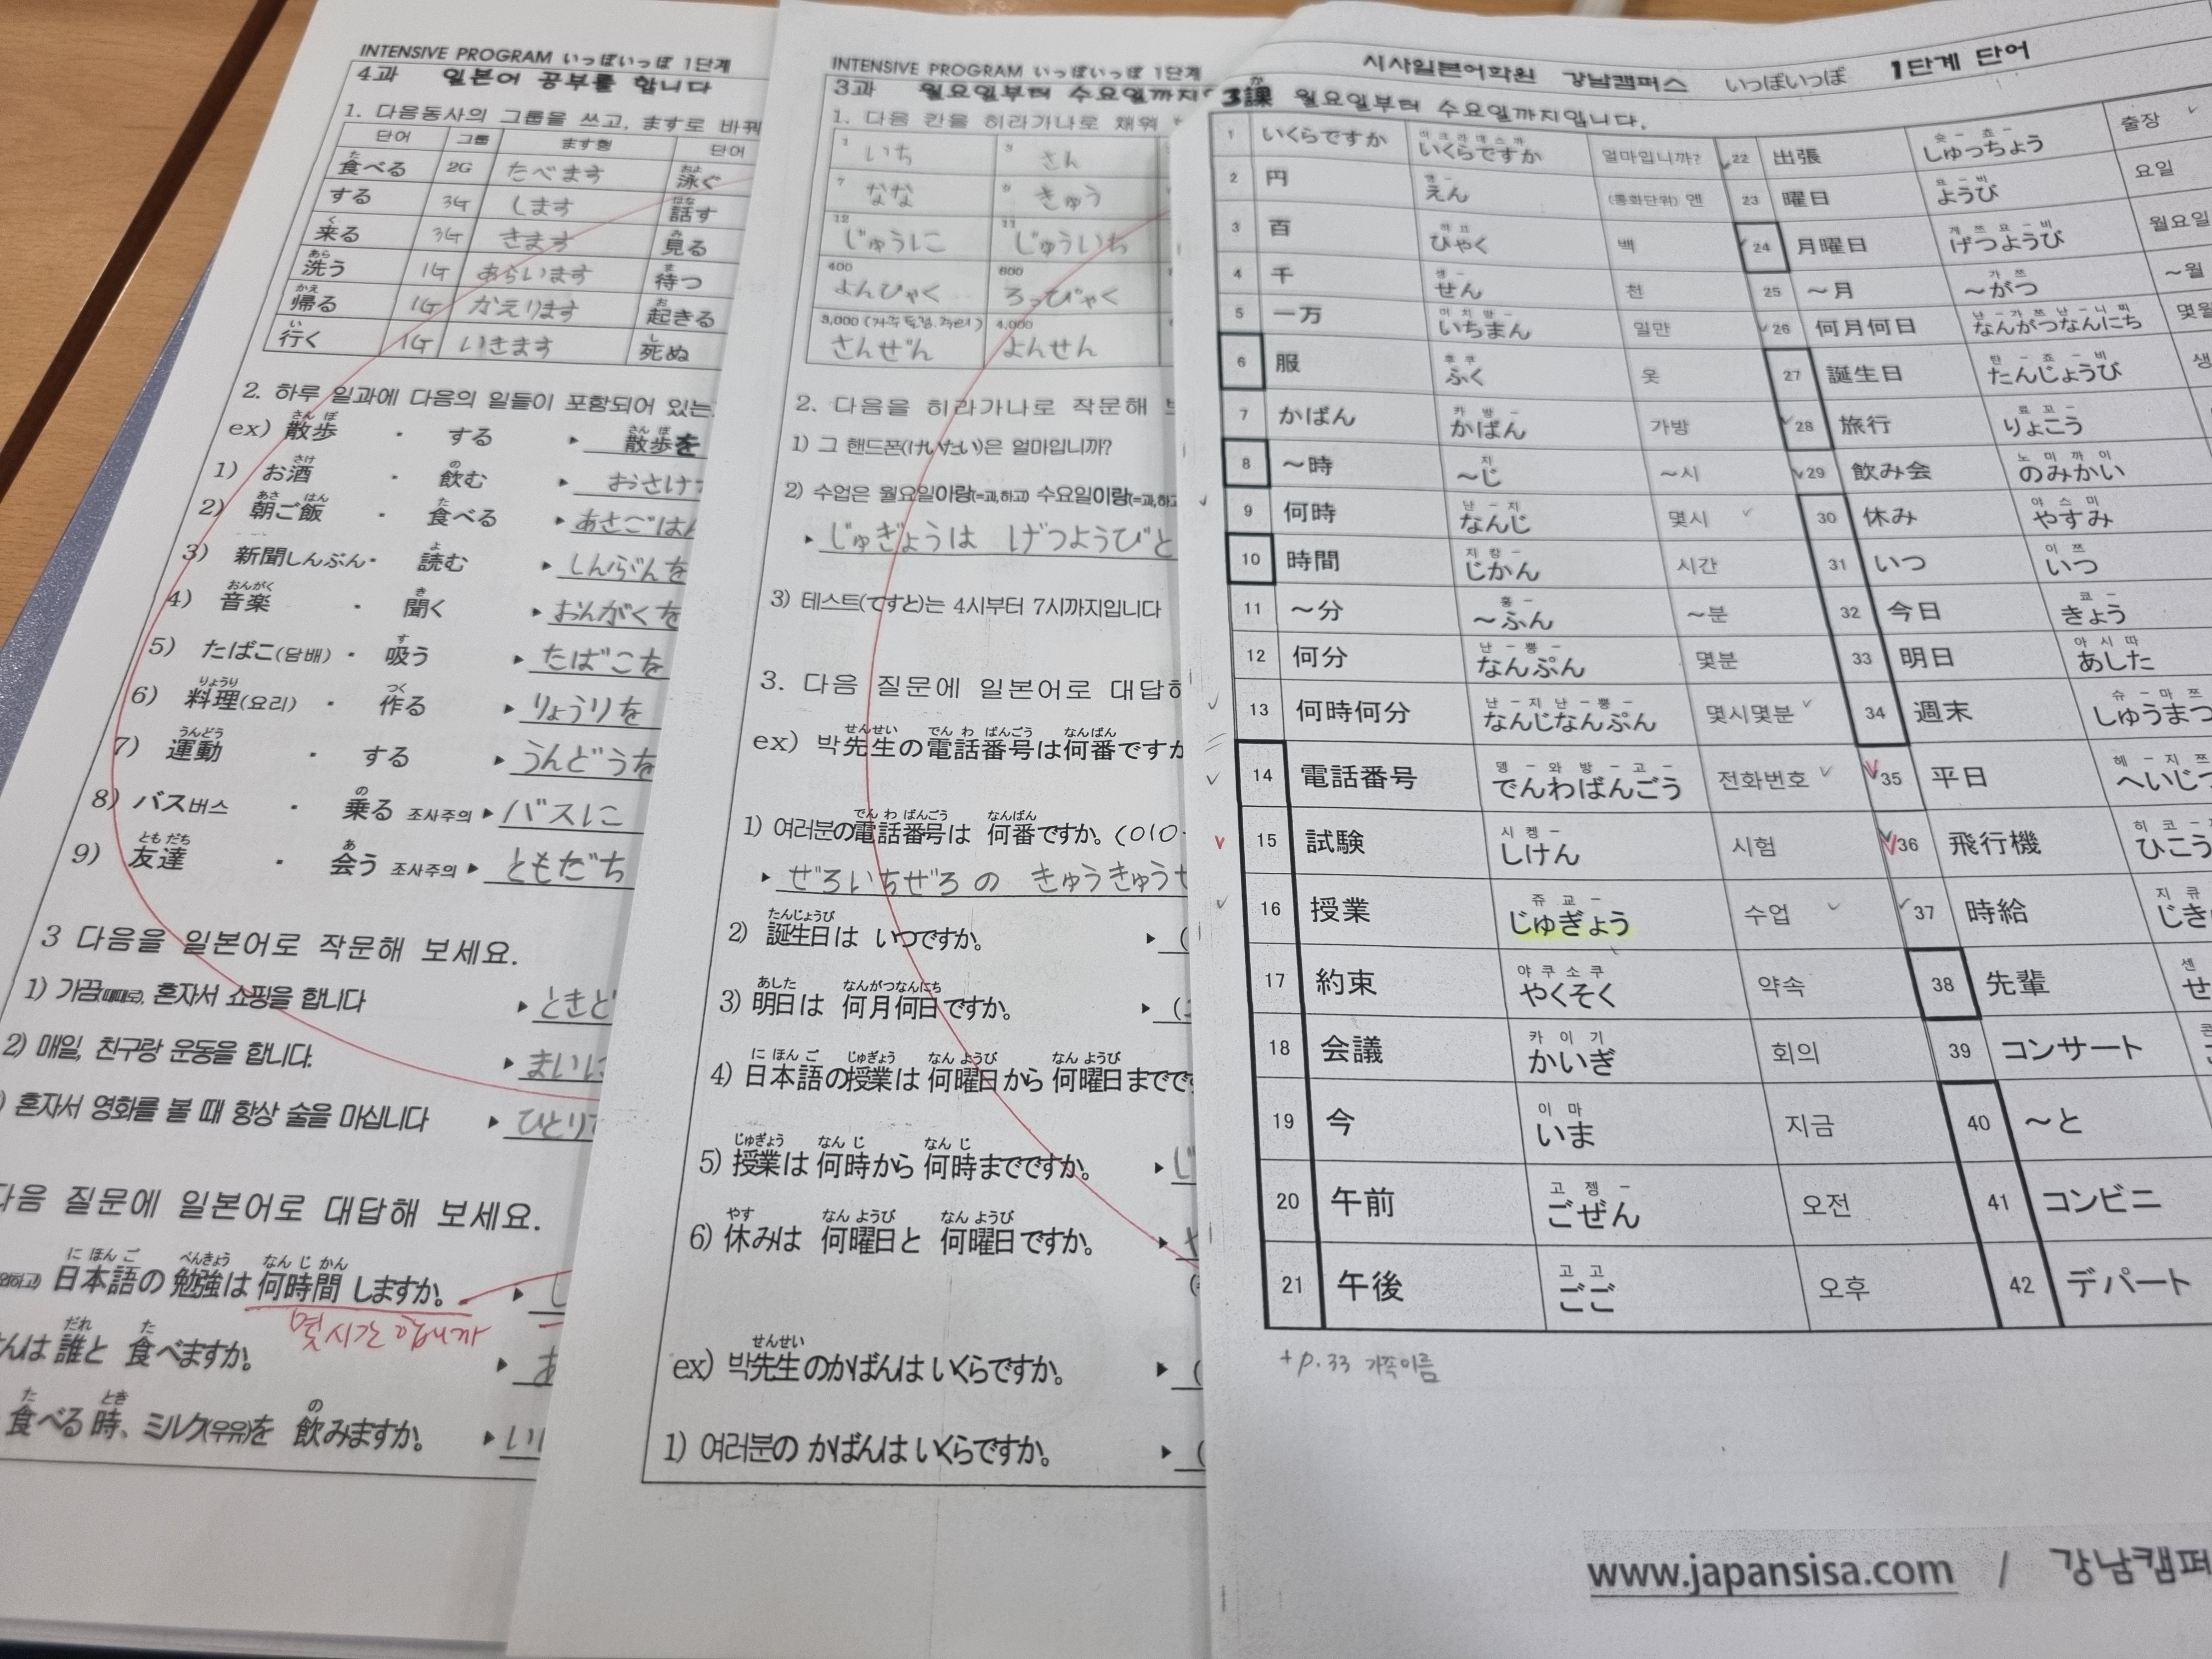 INTENSIVE PROGRAM いっぽいっぽ 1단계
4과 일본어 공부를 합니다
1. 다음동사의 그룹을 쓰고, ます로 바꿔
단어 그룹 ます형 단어
食べる 2G たべます 泳ぐ
た およ
する 3G します 話す
はな
来る 3G きます 見る
く み
洗う 1G あらいます 待つ
あら ま
帰る 1G かえります 起きる
かえ お
行く 1G いきます 死ぬ
い し
2. 하루 일과에 다음의 일들이 포함되어 있는
さん ぽ さん ぽ
ex) 散歩 · する ▸ 散歩を
さけ の
1) お酒 · 飲む ▸ おさけ
あさ はん た
2) 朝ご飯 · 食べる ▸ あさごはん
よ
3) 新聞しんぶん· 読む ▸ しんぶんを
おんがく き
4) 音楽 · 聞く ▸ おんがくを
す
5) たばこ(담배) · 吸う ▸ たばこを
りょうり つく
6) 料理(요리) · 作る ▸ りょうりを
うんどう
7) 運動 · する ▸ うんどうを
の
8) バス버스 · 乗る 조사주의 ▸ バスに
ともだち あ
9) 友達 · 会う 조사주의 ▸ ともだち
3 다음을 일본어로 작문해 보세요.
1) 가끔 혼자서 쇼핑을 합니다 ▸ ときど
2) 매일, 친구랑 운동을 합니다. ▸ まいに
) 혼자서 영화를 볼 때 항상 술을 마십니다 ▸ ひとりで
다음 질문에 일본어로 대답해 보세요.
に ほん ご べんきょう なん じ かん
日本語の 勉強は 何時間 しますか。 ▸
몇시간 합니까
だれ た
んは 誰と 食べますか。 ▸ あ
た とき の
食べる 時、ミルク(우유)を 飲みますか。 ▸ い
INTENSIVE PROGRAM いっぽいっぽ 1단계
3과 월요일부터 수요일까지
1. 다음 칸을 히라가나로 채워
1 いち 3 さん
7 なな 9 きゅう
12 じゅうに 11 じゅういち
400 よんひゃく 600 ろっぴゃく
3,000 さんぜん 4,000 よんせん
2. 다음을 히라가나로 작문해
1) 그 핸드폰(けいたい)은 얼마입니까?
2) 수업은 월요일이랑(=과,하고) 수요일이랑(=과,하고
▸ じゅぎょうは げつようびと
3) 테스트(てすと)는 4시부터 7시까지입니다
3. 다음 질문에 일본어로 대답하
せんせい でん わ ばんごう なんばん
ex) 박先生の電話番号は何番ですか
でん わ ばんごう なんばん
1) 여러분の電話番号は 何番ですか。(010-
▸ ぜろいちぜろの きゅうきゅう
たんじょうび
2) 誕生日は いつですか。 ▸ (
あした なんがつなんにち
3) 明日は 何月何日ですか。 ▸ (
に ほん ご じゅぎょう なん ようび なん ようび
4) 日本語の授業は 何曜日から 何曜日までで
じゅぎょう なん じ なん じ
5) 授業は 何時から 何時までですか。 ▸ じ
やす なん ようび なん ようび
6) 休みは 何曜日と 何曜日ですか。 ▸ や
せんせい
ex) 박先生のかばんは いくらですか。 ▸ (
1) 여러분の かばんは いくらですか。 ▸ (
시사일본어학원 강남캠퍼스 いっぽいっぽ 1단계 단어
か
3課 월요일부터 수요일까지입니다.
1 いくらですか 이크라데스까 いくらですか 얼마입니까? 22 出張 슛-쵸- しゅっちょう 출장
2 円 엔- えん (통화단위) 엔 23 曜日 요-비 ようび 요일
3 百 햐쿠 ひゃく 백 24 月曜日 게쯔요-비 げつようび 월요일
4 千 센- せん 천 25 ~月 가쯔 ~がつ ~월
5 一万 이치망- いちまん 일만 26 何月何日 난-가쯔난-니찌 なんがつなんにち 몇월
6 服 후쿠 ふく 옷 27 誕生日 탄-죠-비 たんじょうび 생
7 かばん 카방- かばん 가방 28 旅行 료꼬- りょこう
8 ~時 지 ~じ ~시 29 飲み会 노미까이 のみかい
9 何時 난-지 なんじ 몇시 30 休み 야스미 やすみ
10 時間 지캉- じかん 시간 31 いつ 이쯔 いつ
11 ~分 훙- ~ふん ~분 32 今日 쿄- きょう
12 何分 난-뿡- なんぷん 몇분 33 明日 아시따 あした
13 何時何分 난-지난-뿡- なんじなんぷん 몇시몇분 34 週末 슈-마쯔 しゅうまつ
14 電話番号 뎅-와방-고- でんわばんごう 전화번호 35 平日 헤-지쯔 へいじつ
15 試験 시켕- しけん 시험 36 飛行機 히코- ひこう
16 授業 쥬교- じゅぎょう 수업 37 時給 지큐 じき
17 約束 야쿠소쿠 やくそく 약속 38 先輩 센 せ
18 会議 카이기 かいぎ 회의 39 コンサート
19 今 이마 いま 지금 40 ~と
20 午前 고젱- ごぜん 오전 41 コンビニ
21 午後 고고 ごご 오후 42 デパート
+ p.33 가족이름
www.japansisa.com / 강남캠퍼